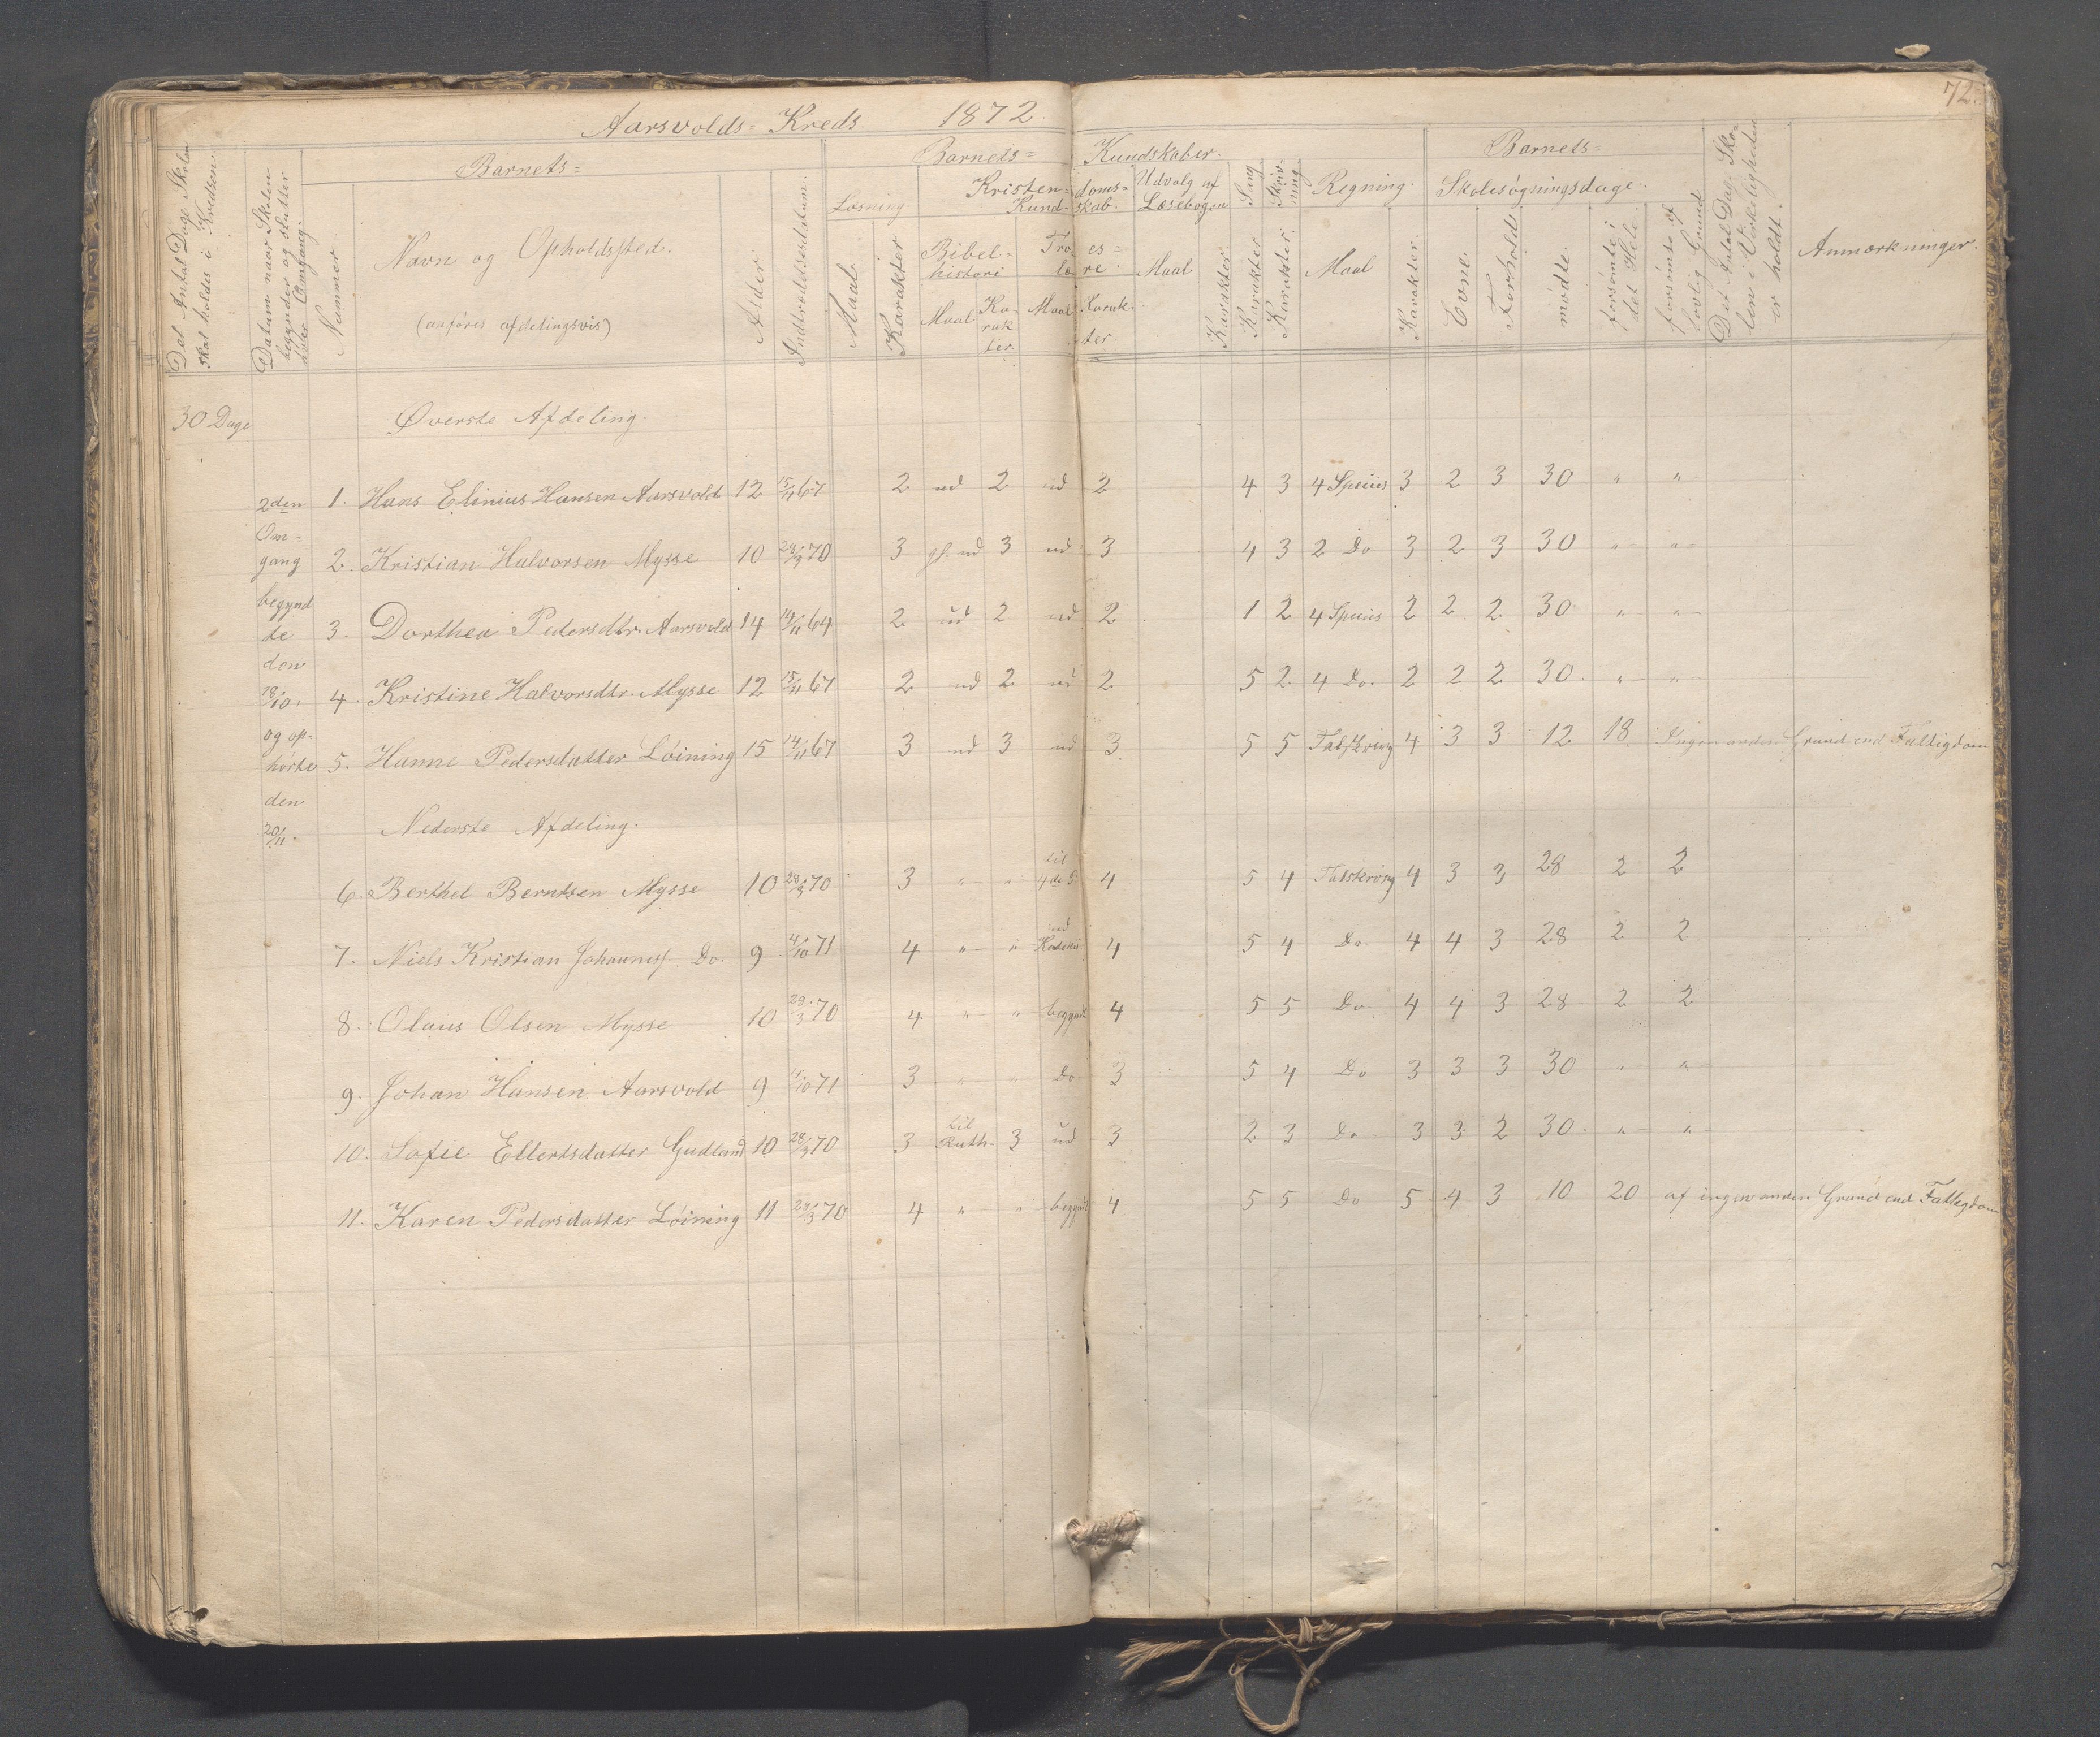 72.
Aarsvolds= Kreds 1872.
Det Antal Dage Skolen skal holdes i Kredsen.
Datum naar Skolen begynder og slutter hver Omgang.
Barnets=
Nummer
Navn og Opholdssted.
(anføres afdelingsvis)
Alder
Indtrædelsesdatum.
Barnets= Kundskaber.
Læsning.
Maal
Karakter
Kristendoms= Kundskab.
Bibelhistorie
Maal
Karakter.
Troeslære.
Maal
Karakter.
Udvalg af Læsebogen
Maal
Karakter
Sang
Karakter
Skrivning
Karakter.
Regning.
Maal
Karakter.
Barnets=
Skolesøgningsdage.
Evne.
Forhold
mødte.
forsømte i det Hele.
forsømte af lovlig Grund
Det Antal Dage Skolen i Virkeligheden er holdt.
Anmærkninger.
30 Dage
Øverste Afdeling.
2den Omgang begyndte den 18/10. og ophørte den 20/11.
1. Hans Elinius Hansen Aarsvold 12 15/11 67 2 ud 2 ud 2 4 3 4 Species 3 2 3 30 " "
2. Kristian Halvorsen Mysse 10 28/3 70 3 gl. ud 3 ud 3 4 3 2 Do 3 2 3 30 " "
3. Dorthea Pedersdtr. Aarsvold 14 14/11 64 2 ud 2 ud 2 1 2 4 Species 2 2 2 30 " "
4. Kristine Halvorsdtr. Mysse 12 15/11 67 2 ud 2 ud 2 5 2 4 Do. 2 2 2 30. " "
5. Hanne Pedersdatter Løining 15 14/11 67 3 ud 3 ud 3. 5 5 Talskrivg 4 3 3 12 18 Ingen anden Grund end Fattigdom
Nederste Afdeling.
6. Berthel Berntsen Mysse 10 28/3 70 3 " " til 4de 4 5 4 Talskrivg 4 3 3 28 2 2
7. Niels Kristian Johanness. Do. 9 4/10 71 4 " " ud 4 5 4 Do 4 4 3 28 2 2
8. Olaus Olsen Mysse 10 29/3 70 4 " " begyndt 4 5 5 Do 4 4 3 28 2 2
9. Johan Hansen Aarsvold 9 /10 71 3 " " Do 3 5 4 Do 3 3 3 30 " "
10. Sofie Ellertsdatter Gudland 10 28/3 70 3 til Ruth. 3 ud 3 2 3 Do 3 3 2 30. " "
11. Karen Pedersdatter Løining 11 29/3 70 4 " " begyndt 4 5 5 Do 5 4 3 10 20 af ingen anden Grund end Fattigdom